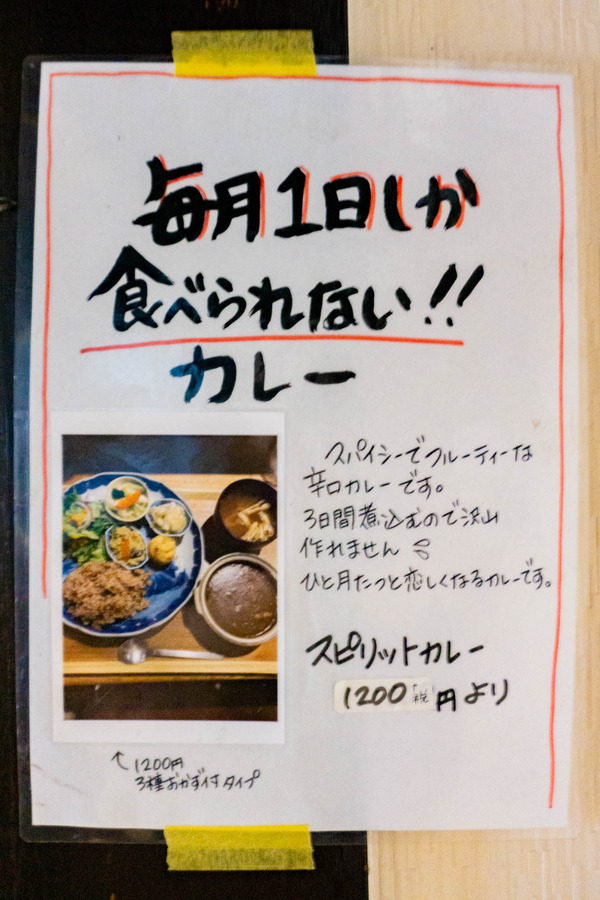 毎月1日しか
食べられない!!
カレー
スパイシーでフルーティーな
辛口カレーです。
3日間煮込むので沢山
作れません
ひと月たつと恋しくなるカレーです。
スピリットカレー
1200円より
↑1200円
3種おかず付タイプ